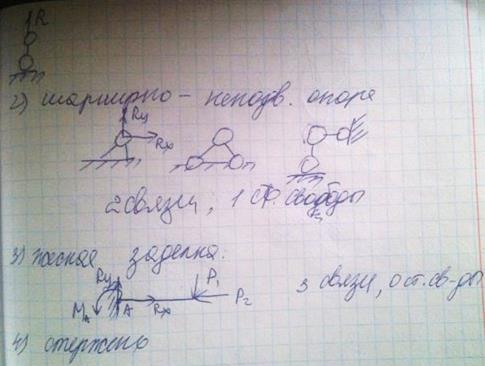 R
2) шарнирно - неподв. опора
Ry
Rx
2 связи, 1 ст. свободы
3) жесткая заделка:
Ry
P1
MA
A
Rx
P2
3 связи, 0 ст. св-ды
4) стержень